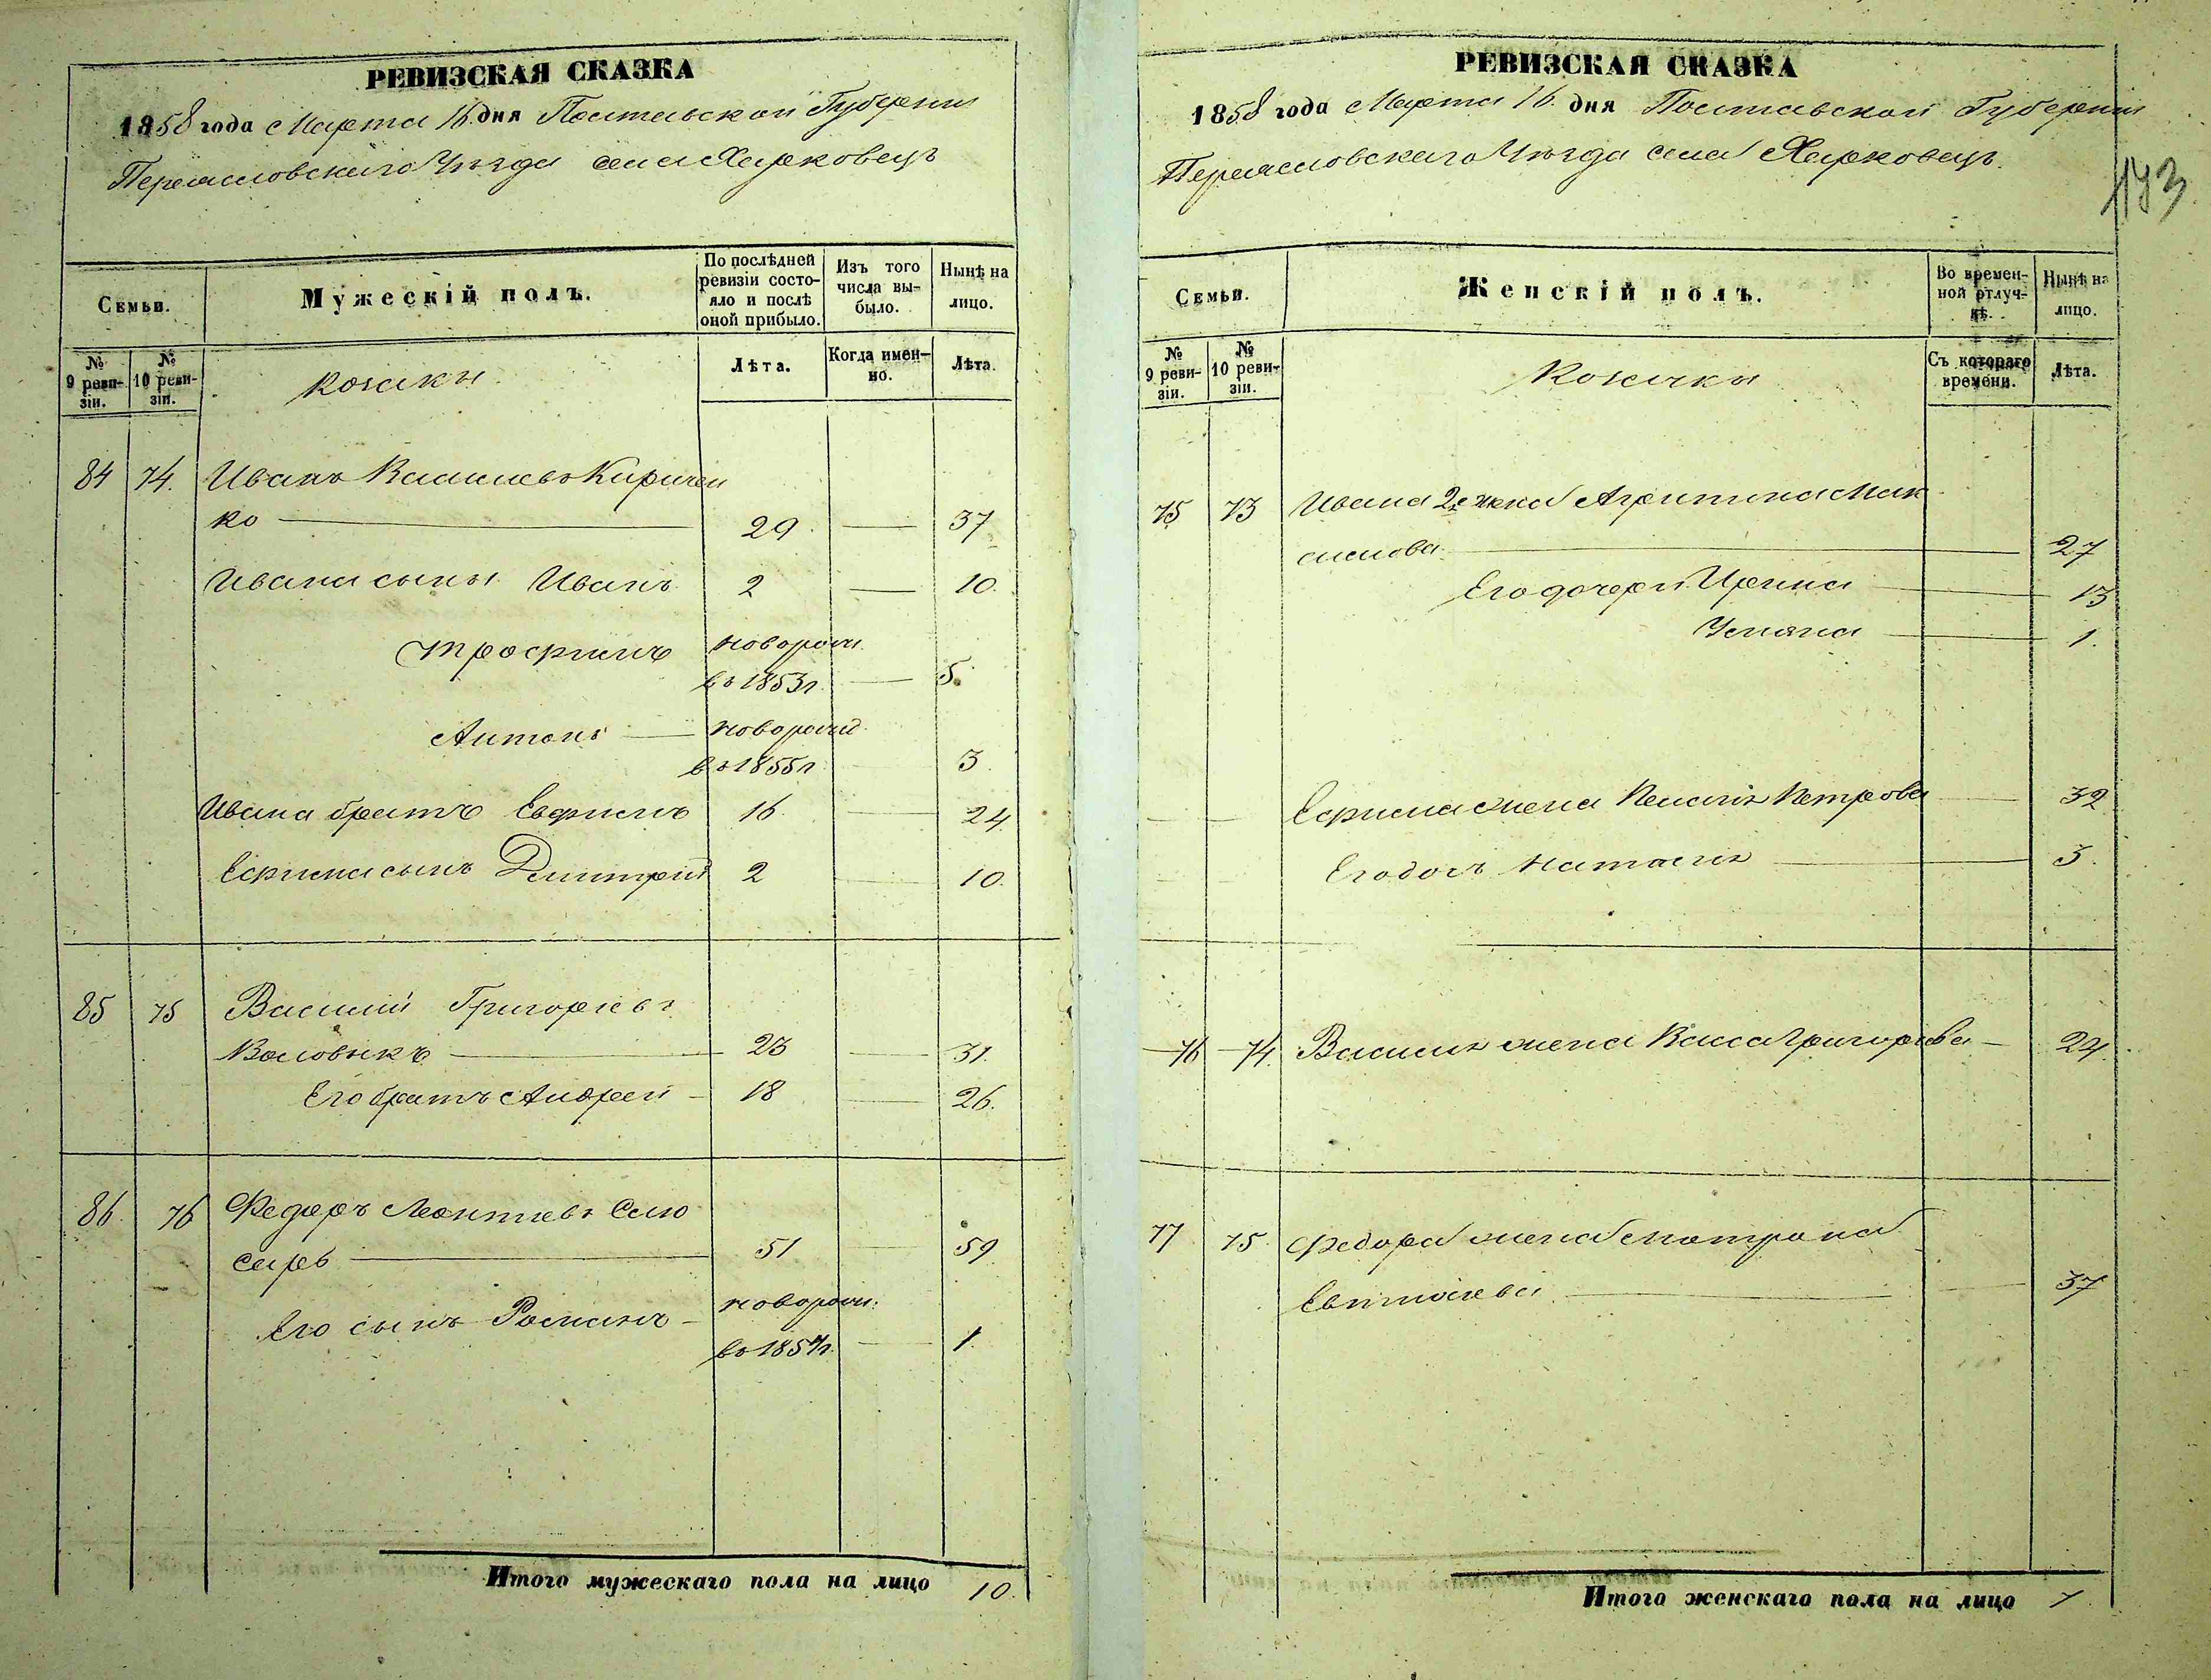 РЕВИЗСКАЯ СКАЗКА
1858 года Марта 16 дня Полтавской Губернии
Переяславскаго Уѣзда села Харковецъ
Семьи.
Мужескій полъ.
По послѣдней ревизіи состояло и послѣ оной прибыло.
Изъ того числа выбыло.
Нынѣ на лицо.
№ 9 ревизіи.
№ 10 ревизіи.
козаки
Лѣта.
Когда именно.
Лѣта.
84 74. Иванъ Васильевъ Киричен
ко 29 37
Ивана сыны Иванъ 2 10.
Трофимъ новорож.
въ 1853 г. 5.
Антонъ новорожд.
въ 1855 г 3.
Ивана братъ Евфимъ 16. 24.
Ефима сынъ Дмитрий 2 10.
85 75 Василий Григорьевъ
Воловикъ 23 31.
Его братъ Андрей 18 26.
86. 76 Федоръ Леонтьевъ
51 59.
Его сынъ Романъ новорож:
въ 1857 г. 1.
Итого мужескаго пола на лицо 10.
РЕВИЗСКАЯ СКАЗКА
1858 года Марта 16. дня Полтавской Губернии
Переяславскаго Уѣзда села Харковецъ.
143
Семьи.
Женскій полъ.
Во временной отлучкѣ.
Нынѣ на лицо.
№ 9 ревизіи.
№ 10 ревизіи.
Козачки
Съ котораго времени.
Лѣта.
75 73 Ивана 2я жена Агрипина Мак
симова 27
Его дочери Ирина 13
Ульяна 1.
Ефима жена Пелагія Петрова 32
Его дочь Наталія 3.
76 74. Василія жена Васса Григорьева 24.
77 75. Федора жена Матрона
37
Итого женскаго пола на лицо 7.